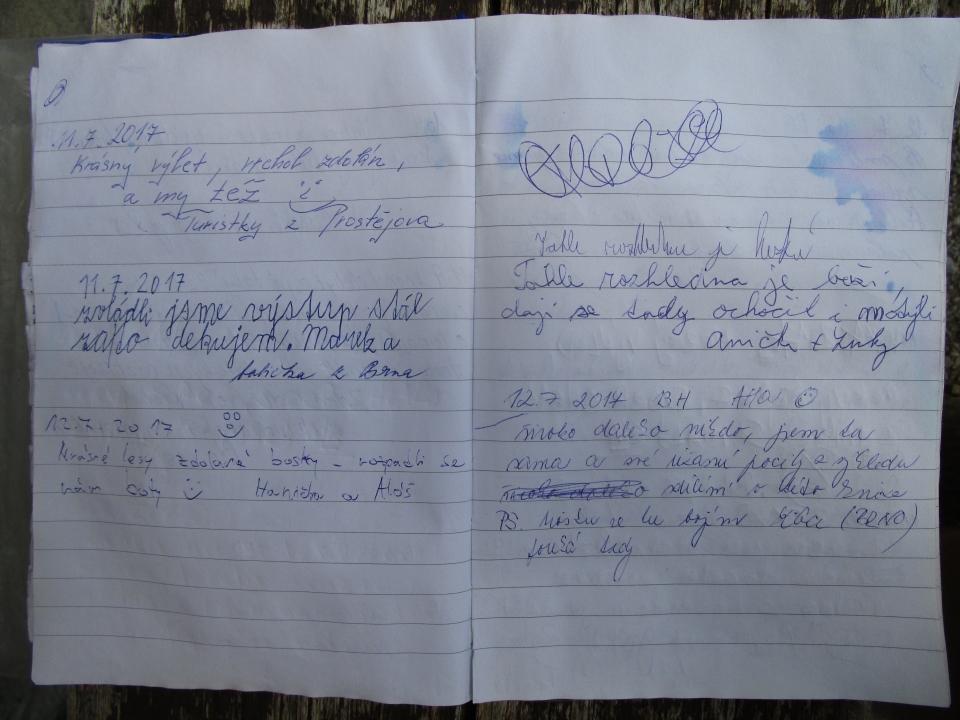 11.7.2017
Krásný výlet, vrchol zdolán,
a my též
Turistky z Prostějova
11.7.2017
zvládli jsme výstup stál
zato dekujem. Marek a
babička z Brna
12.7.2017
Krásné lesy zdolané bosky - rozpadli se
nám boty Hanička a Aleš
Tahle rozhledna je hezká
Tahle rozhledna je boží,
dají se tady ochočit i motýli
Anička +
12.7 2017 BH
daleko nikdo, jsem tu
sama a své úžasné pocity z výhledu
sdílím
PS. se tu bojím (BRNO)
fouká tady